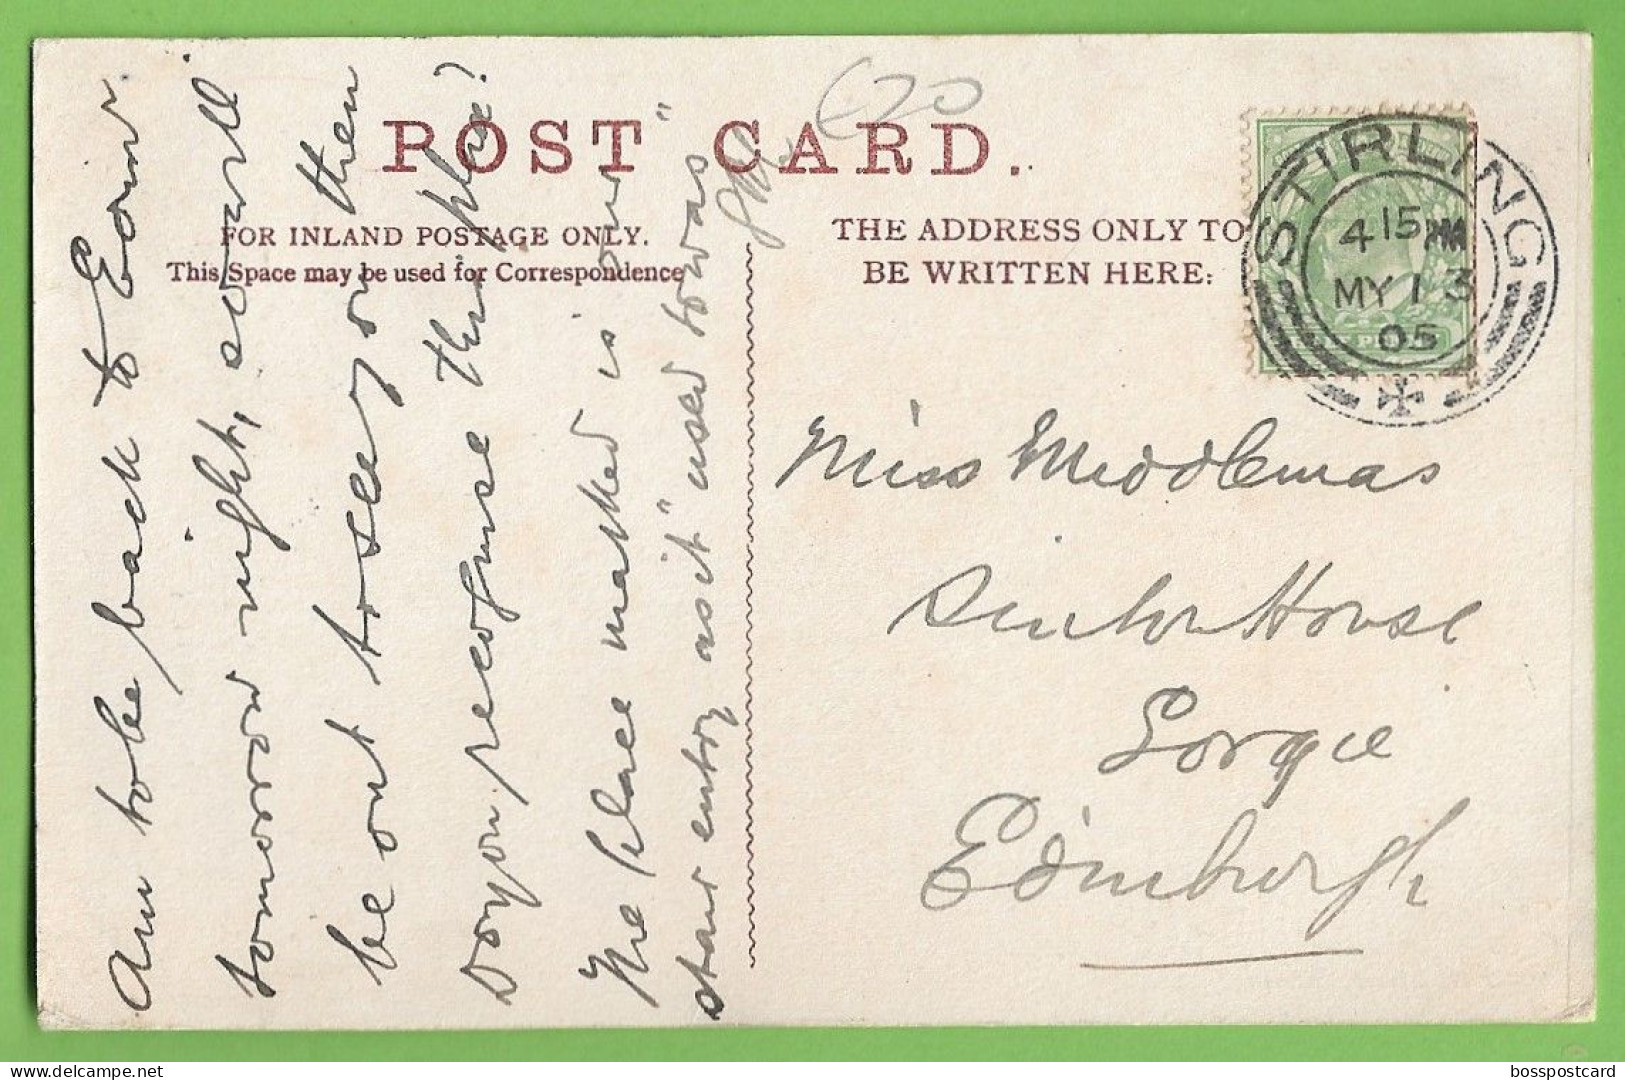 POST CARD.
FOR INLAND POSTAGE ONLY.
This Space may be used for Correspondence
THE ADDRESS ONLY TO
BE WRITTEN HERE:
STIRLING
4 15 PM
MY 13
05
Miss Middlemas
House
Gorgie
Edinburgh
Am to be back to Edinr.
tomorrow night, so will
be out to see you then
Do you recognise this place?
The place marked is our
stair entry as it "used to was"
€20
bosspostcard